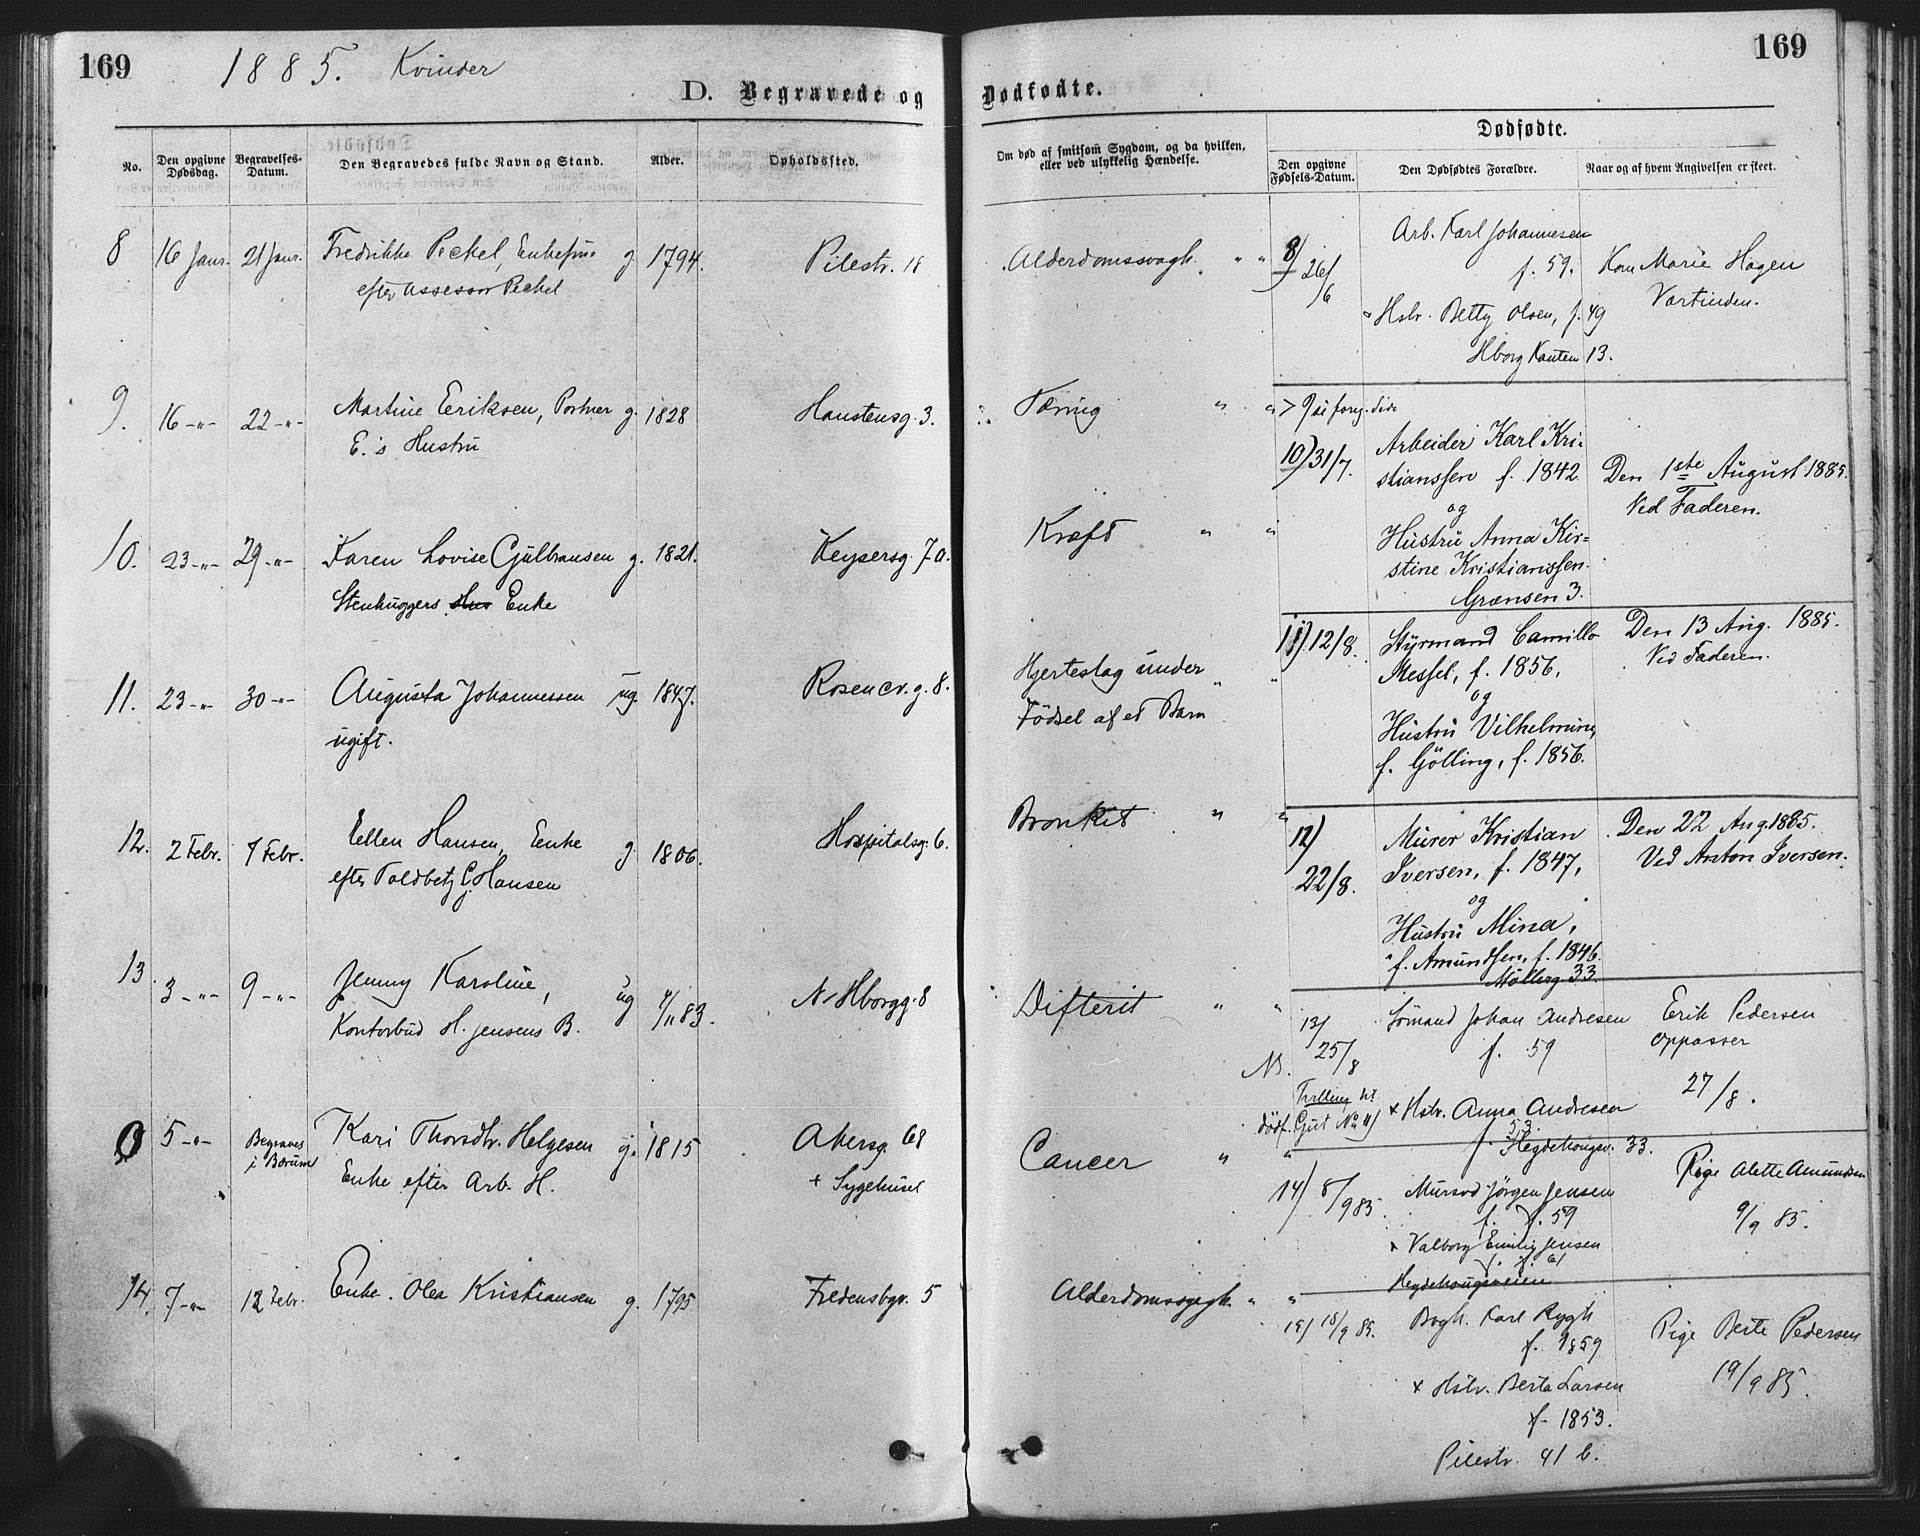 169
1885. Kvinder
D. Begravede og
No.
Den opgivne Dødsdag.
Begravelses-Datum.
Den Begravedes fulde Navn og Stand.
Alder.
Opholdssted.
8 16 Janr. 21 Janr. Fredrikke Peckel, Enkefrue g. 1794. Pilestr. 18
efter Assessor Peckel
9. 16 -"- 22 -"- Martine Eriksen, Portner g. 1828 Hanstensg. 3.
E.s Hustru
10. 23 -"- 29 -"- Karen Lovise Gulbransen g. 1821. Keysersg. 7a.
Stenhuggers Hus Enke
11. 23 -"- 30 -"- Augusta Johannessen ug. 1847. Rosencr. g. 8.
ugift.
12. 2 Febr. 7 Febr. Ellen Hansen, Enke g. 1806. Hospitalsg. 6.
efter Toldbetj C. Hansen
13 3 -"- 9 -"- Jenny Karoline, ug 4/11 83. N. Hborgg. 8
Kontorbud H. Jensens B.
0 5 -"- Begraves Kari Thorsdtr. Helgesen g. 1815 Akersg. 68
i Bærum Enke efter Arb. H. + Sygehuset
14. 7 -"- 12 Febr. Enke. Olea Kristiansen g. 1795 Fredensbgv. 5
169
Dødfødte.
Om død af smitsom Sygdom, og da hvilken,
eller ved ulykkelig Hændelse.
Dødfødte.
Den opgivne Fødsels-Datum.
Den Dødfødtes Forældre.
Naar og af hvem Angivelsen er skeet.
Alderdomssvagh. " "
Tæring " "
Kræft " "
Hjerteslag under " "
Fødsel af et Barn
Bronkit " "
Difterit " "
Cancer " "
Alderdomssvagh. " "
8) 26/6 Arb. Karl Johannesen
f. 59. Kone Marie Hagen
Værtinden.
Hstr. Betty Olsen, f. 49
Hborg Kanten 13.
> 9 se foreg. side
10) 31/7. Arbeider Karl Kri-
stianssen f. 1842 Den 1ste August 1885.
og Ved Faderen.
Hustru Anna Kir-
stine Kristianssen.
Grænsen 3.
11) 12/8. Styrmand Camillo Den 13 Aug. 1885.
Messel, f. 1856, Ved Faderen.
og
Hustru Vilhelmine,
f. Gölling, f. 1856.
12) Murer Kristian Den 22 Aug. 1885.
22/8. Iversen, f. 1847, Ved Anton Iversen.
og
Hustru Mina,
f. Amundsen, f. 1846.
Møllerg. 33.
13/ Sømand Johan Andresen Erik Pedersen
25/8 f. 59 oppasser
NB. 27/8.
Tvilling til
dødf. Gut No 11) × Hstr. Anna Andresen
f. 53.
Hegdehougsv. 33.
14) 8/9 85 Mursvd Jørgen Jensen Pige Alette Amundsen
f. 59 9/9 85.
× Valborg Emilie Jensen
f. 61
Hegdehougsveien
15) 18/9 85. Bogh. Karl Rygh Pige Berte Pedersen
f. 1859 19/9 85.
× Hstr. Berta Larsen
f. 1853.
Pilestr. 41 b.